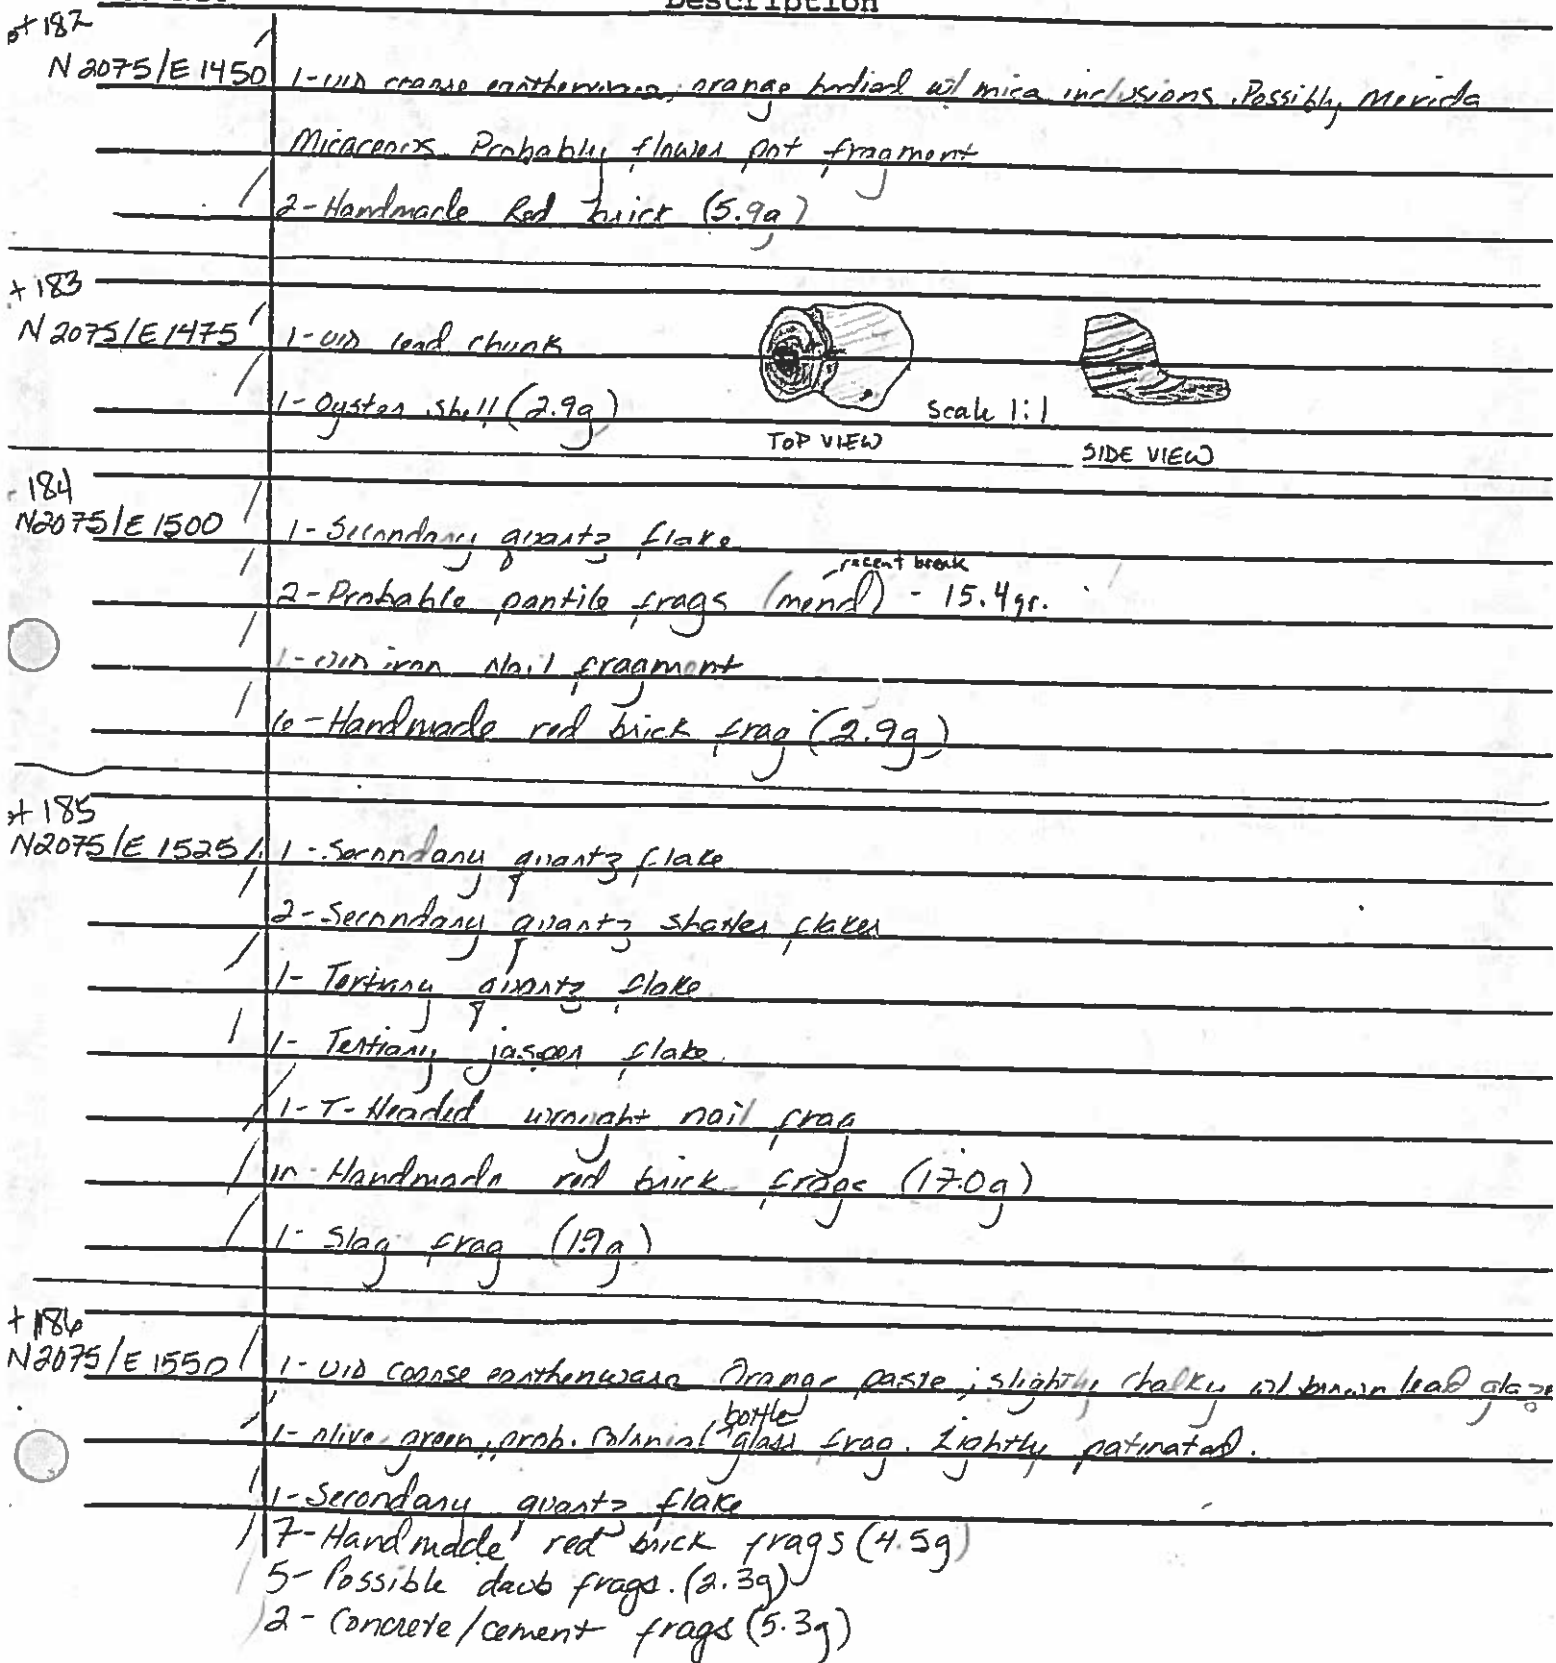 Description
+ 182
N 2075/E 1450
1- UID coarse earthenware, orange bodied w/ mica inclusions. Possibly Merida
Micaceous. Probably flower pot fragment
2- Handmade Red brick (5.9g)
+ 183
N 2075/E 1475
1- UID lead chunk
1- Oyster shell (2.9g)
Scale 1:1
TOP VIEW
SIDE VIEW
184
N2075/E 1500
1- Secondary quartz flake
recent break
2- Probable pantile frags (mend) - 15.4gr.
1- UID iron Nail fragment
6- Handmade red brick frag (2.9g)
+ 185
N2075/E 1525
1- Secondary quartz flake
2- Secondary quartz shatter flakes
1- Tertiary quartz flake
1- Tertiary jasper flake
1- T-Headed wrought nail frag
Handmade red brick frags (17.0g)
1- Slag frag (1.9g)
+ 186
N2075/E 1550
1- UID coarse earthenware Orange paste, slightly chalky w/ brown lead glaze
bottle
1- olive green, prob. Colonial glass frag. Lightly patinated.
1- Secondary quartz flake
7- Handmade red brick frags (4.5g)
5- Possible daub frags. (2.3g)
2- Concrete/cement frags (5.3g)